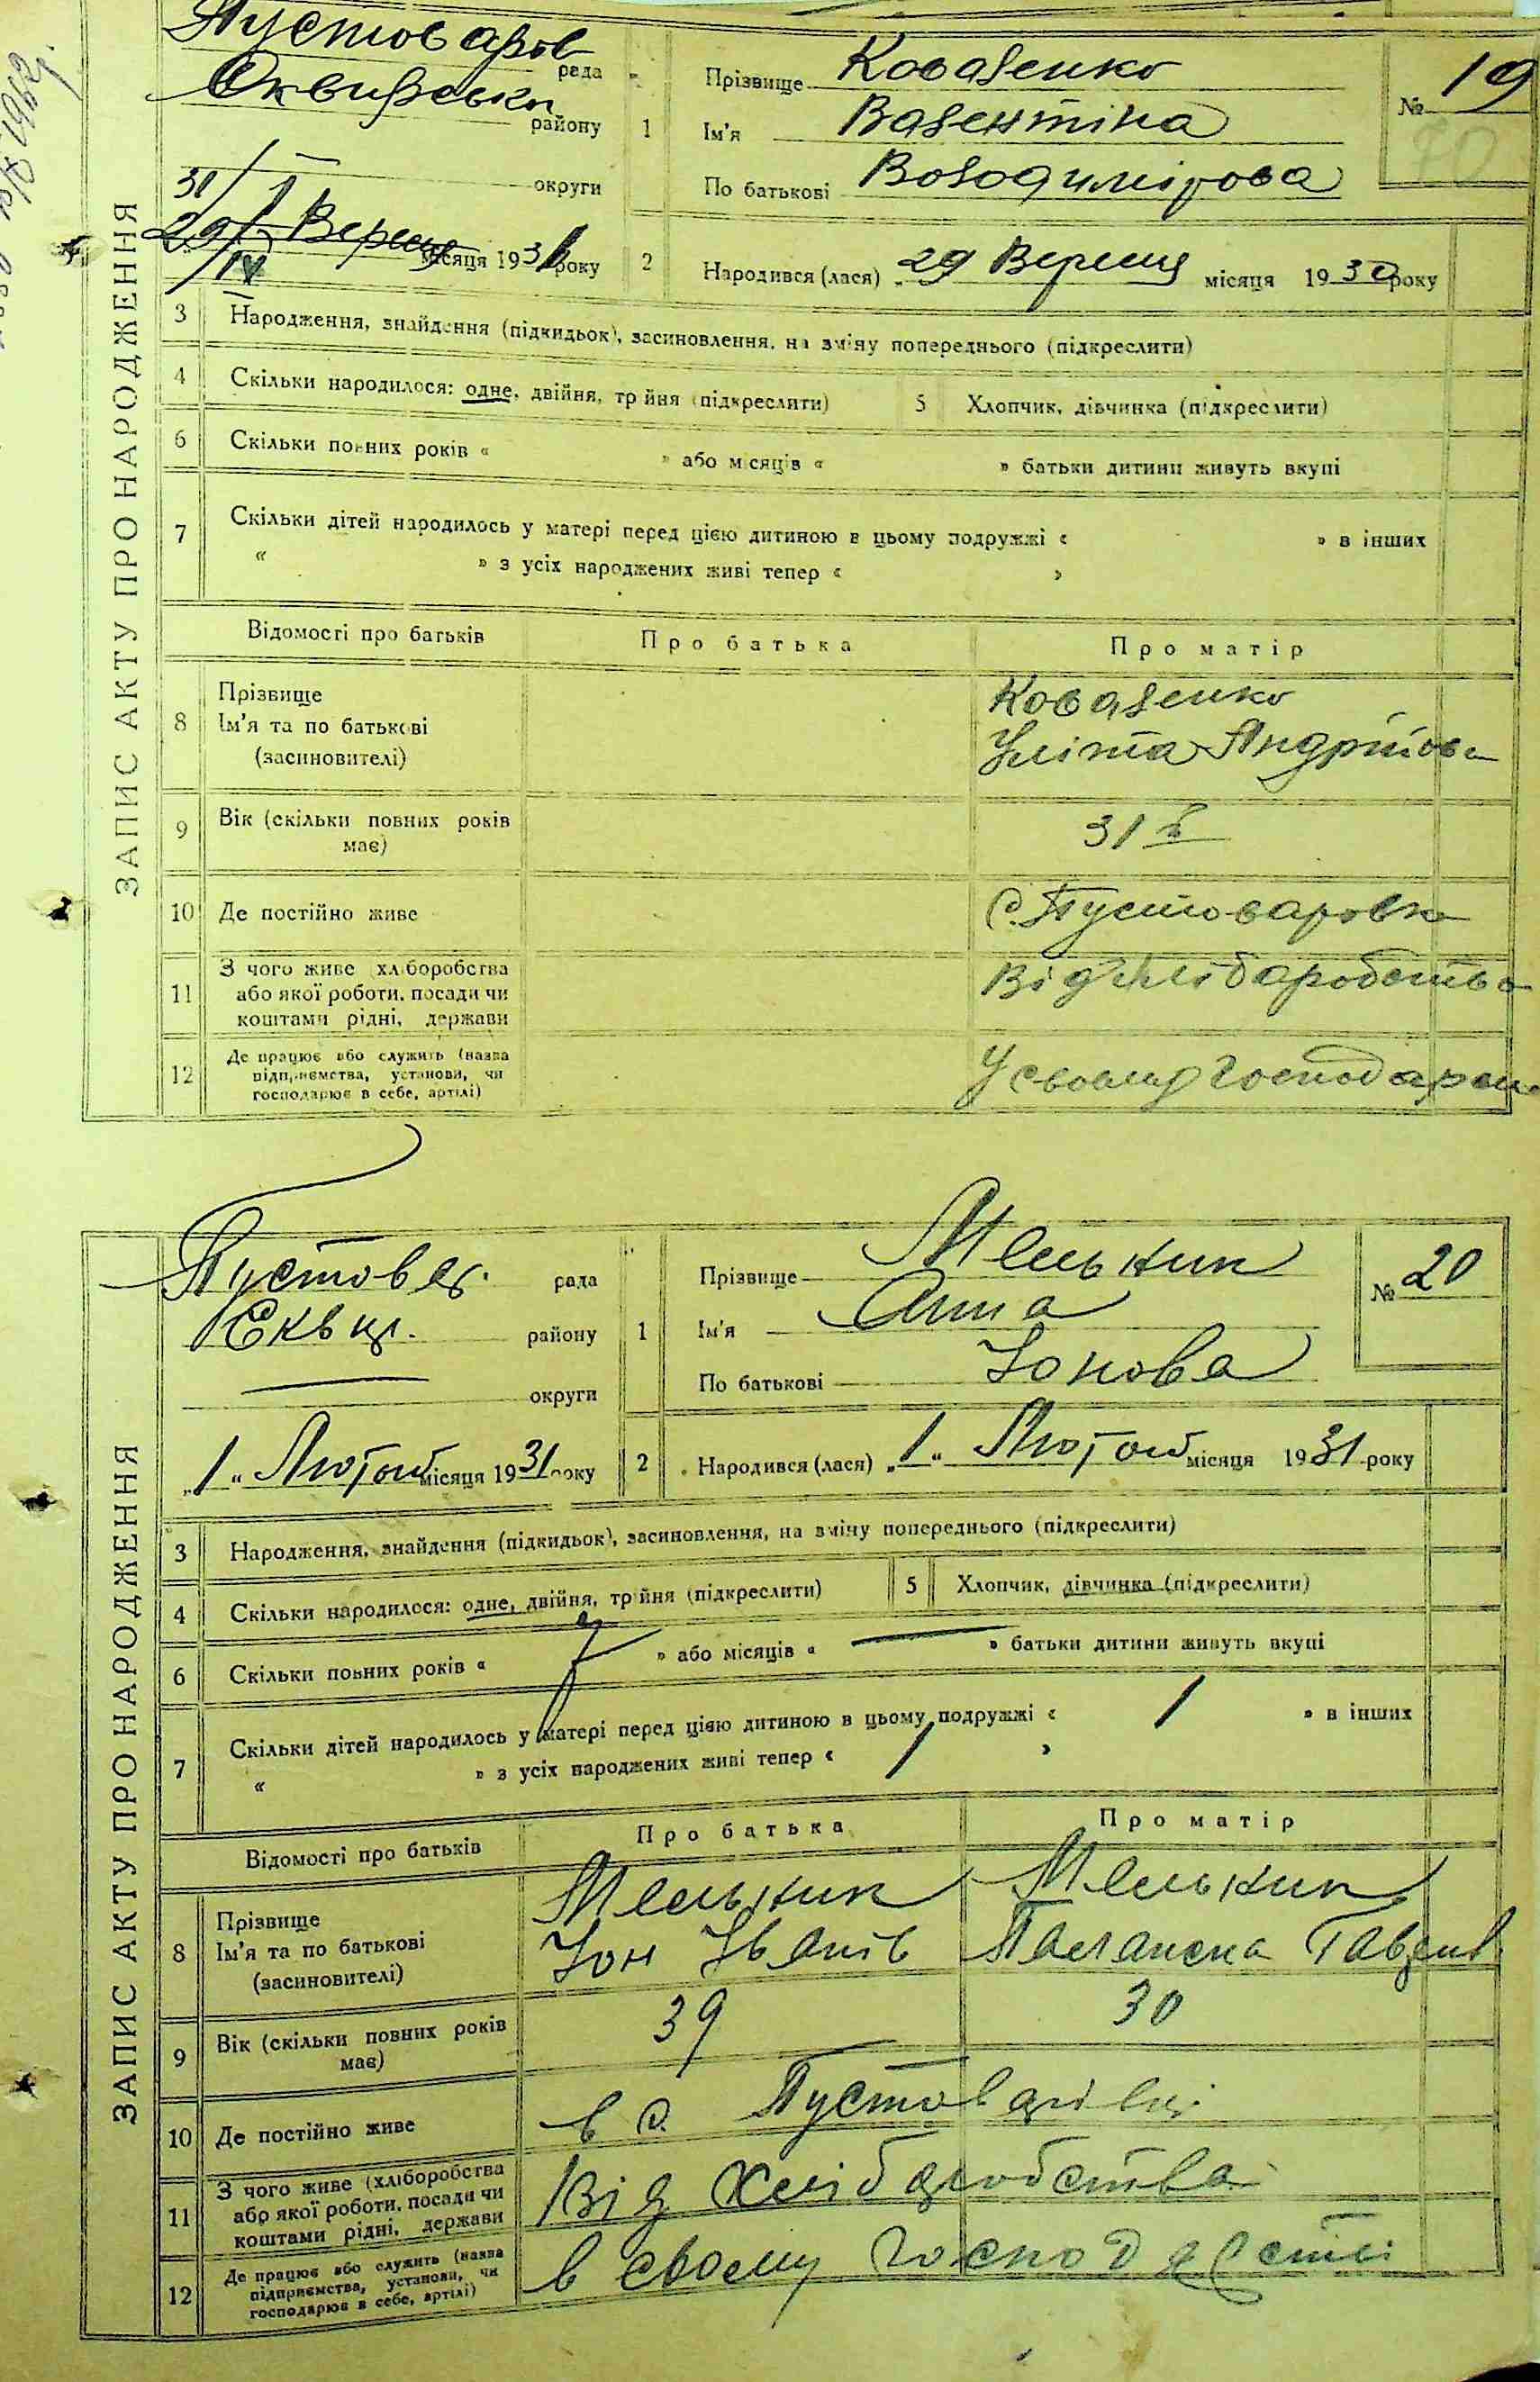 ЗАПИС АКТУ ПРО НАРОДЖЕННЯ
Пустоваров рада
Сквирськи району
округи
31/I
29 Вересня місяця 1931 року
/IV
1 Прізвище Коваленко
Ім'я Валентіна
По батькові Володимірова
№ 19
70
2 Народився (лася) „29 Вересня місяця 1930 року
3 Народження, знайдення (підкидьок), засиновлення, на зміну попереднього (підкреслити)
4 Скільки народилося: одне, двійня, трійня (підкреслити) 5 Хлопчик, дівчинка (підкреслити)
6 Скільки повних років « » або місяців « » батьки дитини живуть вкупі
7 Скільки дітей народилось у матері перед цією дитиною в цьому подружжі « » в інших
« » з усіх народжених живі тепер « »
Відомості про батьків Про батька Про матір
8 Прізвище
Ім'я та по батькові
(засиновителі)
Коваленко
Уліта Андрійова
9 Вік (скільки повних років має)
31
10 Де постійно живе
с. Пустоваровка
11 З чого живе (хліборобства
або якої роботи, посади чи
коштами рідні, держави
Від хлібаробства
12 Де працює або служить (назва
підприємства, установи, чи
господарює в себе, артілі)
У своему господарсті
ЗАПИС АКТУ ПРО НАРОДЖЕННЯ
Пустовар. рада
Сквир. району
округи
„1“ Лютого місяця 1931 року
1 Прізвище Мельник
Ім'я Анна
По батькові Йонова
№ 20
2 Народився (лася) „1“ Лютого місяця 1931 року
3 Народження, знайдення (підкидьок), засиновлення, на зміну попереднього (підкреслити)
4 Скільки народилося: одне, двійня, трійня (підкреслити) 5 Хлопчик, дівчинка (підкреслити)
6 Скільки повних років « » або місяців « — » батьки дитини живуть вкупі
7 Скільки дітей народилось у матері перед цією дитиною в цьому подружжі « 1 » в інших
« » з усіх народжених живі тепер « 1 »
Відомості про батьків Про батька Про матір
8 Прізвище
Ім'я та по батькові
(засиновителі)
Мельник Мельник
Йон Іванів
9 Вік (скільки повних років має)
39 30
10 Де постійно живе
в с. Пустоварівці
11 З чого живе (хліборобства
або якої роботи, посади чи
коштами рідні, держави
Від хлібаробства
12 Де працює або служить (назва
підприємства, установи, чи
господарює в себе, артілі)
в своему господарстві